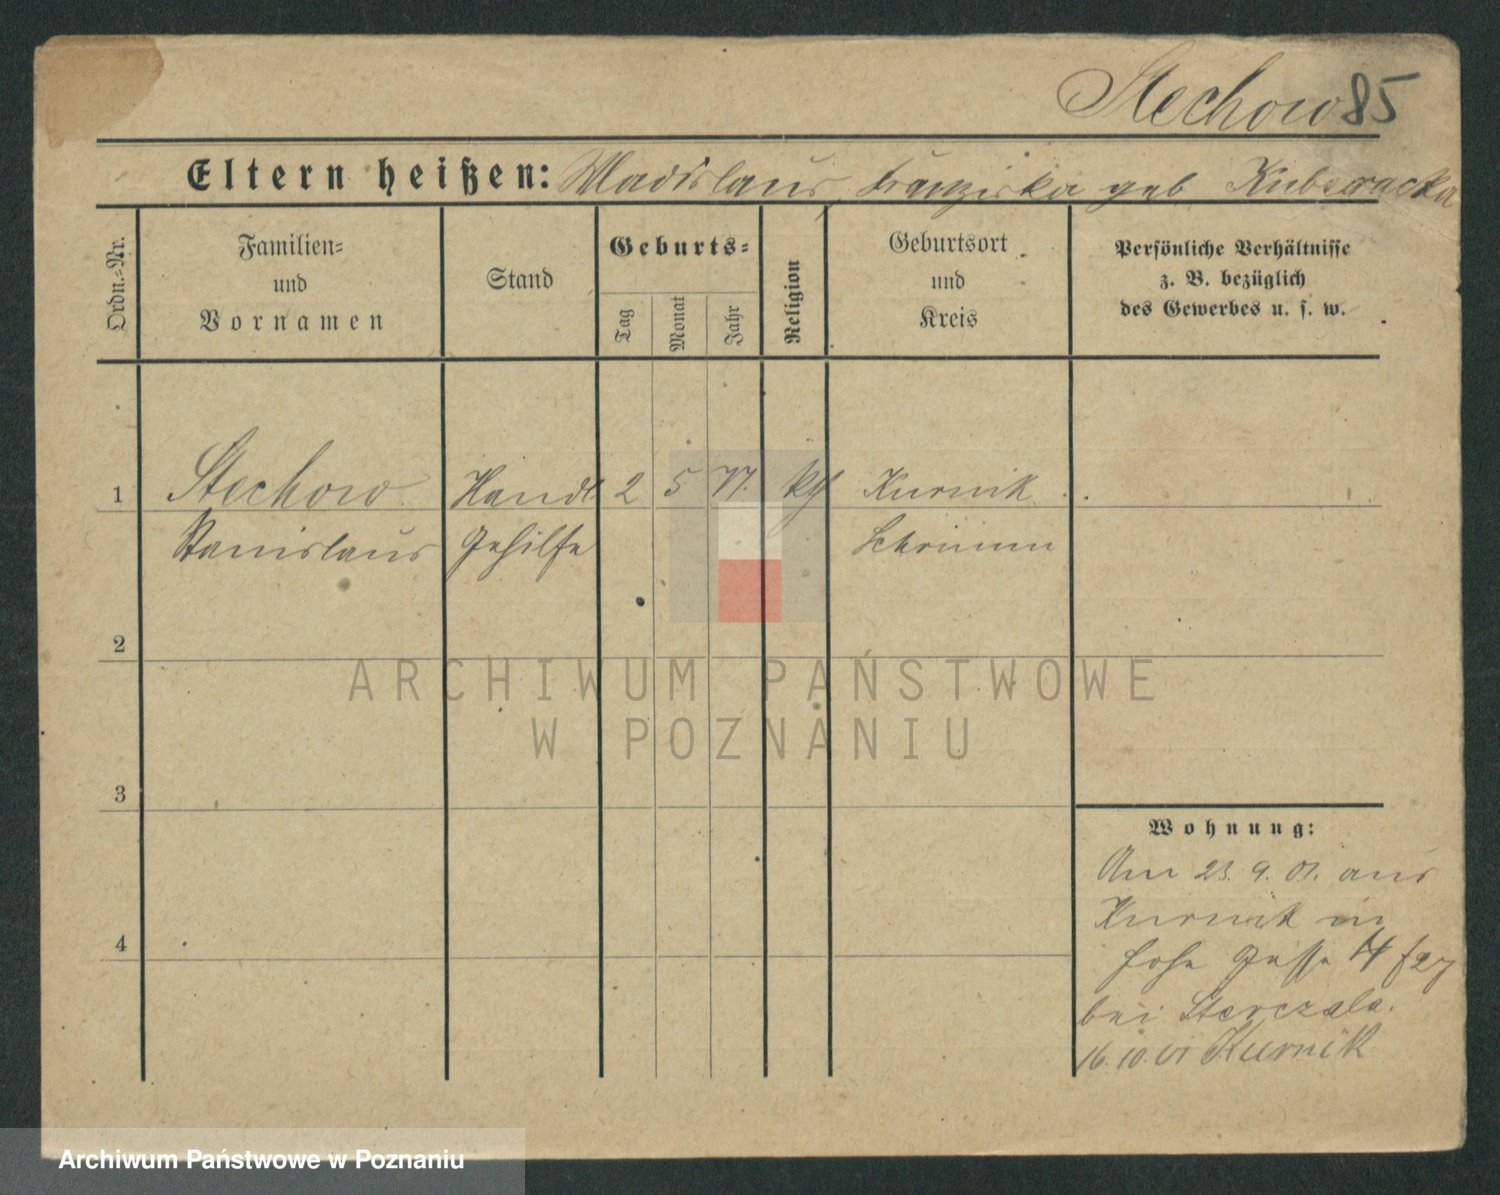 Stechow 85
Eltern heißen: Wladislaus, Franziska geb Kuberacka
Ordn.-Nr.
Familien-
und
Vornamen
Stand
Geburts-
Tag
Monat
Jahr
Religion
Geburtsort
und
Kreis
Persönliche Verhältnisse
z. B. bezüglich
des Gewerbes u. s. w.
1 Stechow Handl. 2 5 77. kth Kurnik
Stanislaus Gehilfe Schrimm
2
3
4
Wohnung:
Am 23. 9. 01. aus
Kurnik in
hohe Gasse
bei Sterczala.
16.10.01 Kurnik
ARCHIWUM PAŃSTWOWE
W POZNANIU
Archiwum Państwowe w Poznaniu